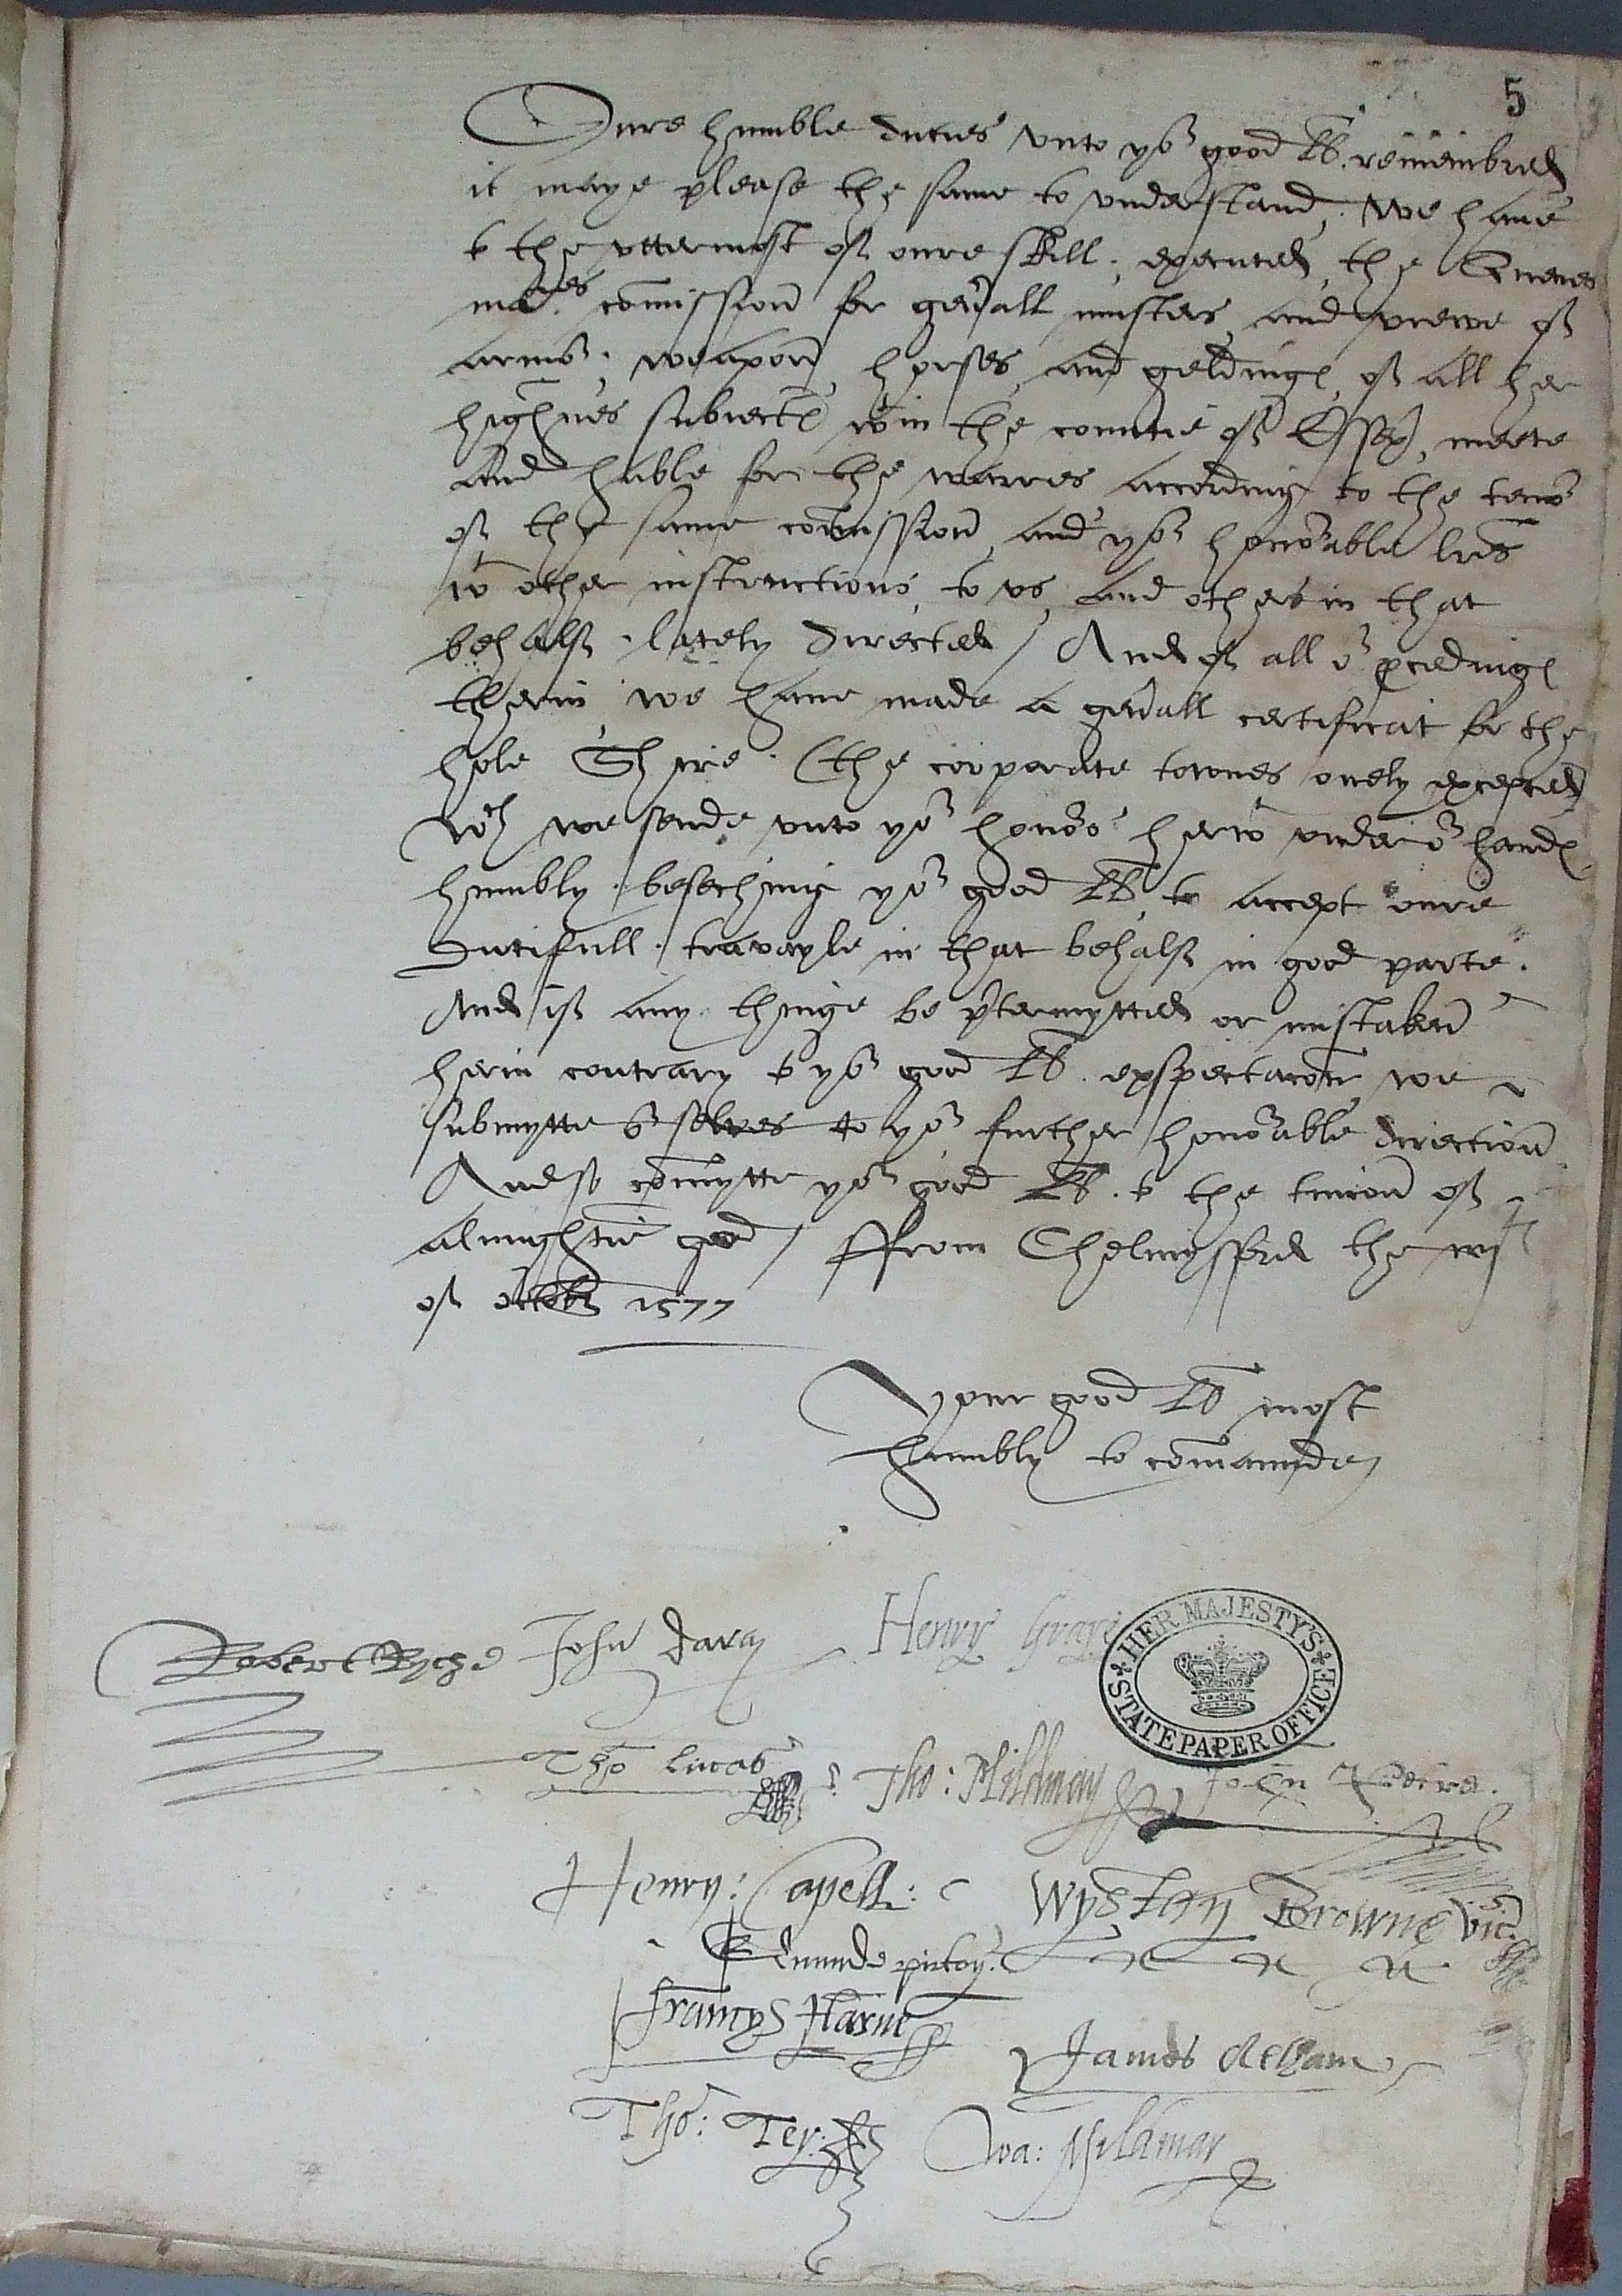 5
Oure humble duties vnto yor good LL. remembred
it maye please the same to vnderstand, we haue
to the vttermost of oure skill, executed, the Quenes
maties comission for gen'all musters, and viewe of
armor, weapon, horses, and geldings, of all her
highnes subiects wthin the countie of Essex, meete
and hable for the warres according to the tenor
of the same comission, and yor honorable lres
wth other instructions, to vs and others in that
behalf lately directed / And of all or pcedings
therin we haue made a gen'all certificat for the
hole Shire (the corporate townes onely excepted)
wch we sende vnto yor honors herwth vnder or hands
humbly beseching yor good LL to accept oure
dutifull travayle in that behalf in good parte.
And if any thinge be p'termytted or mistaken
herin contrary to yor good LL. expectacon, we
submytte or selves to yor further honorable direction
And so comytte yor good LL. to the tuicon of
almightie god / ffrom Chelmysford the
of october 1577
Your good LL most
humbly to comaunde
Robert Ryche John Darcy Henry Graye
HER MAJESTY'S STATE PAPER OFFICE
Tho Lucas Tho: Mildmay John
Henry: Capell: Wystan Browne vic
Edmunde pirton
Frauncys Harve
James Altham
Tho: Tey: Wa: Myldmay